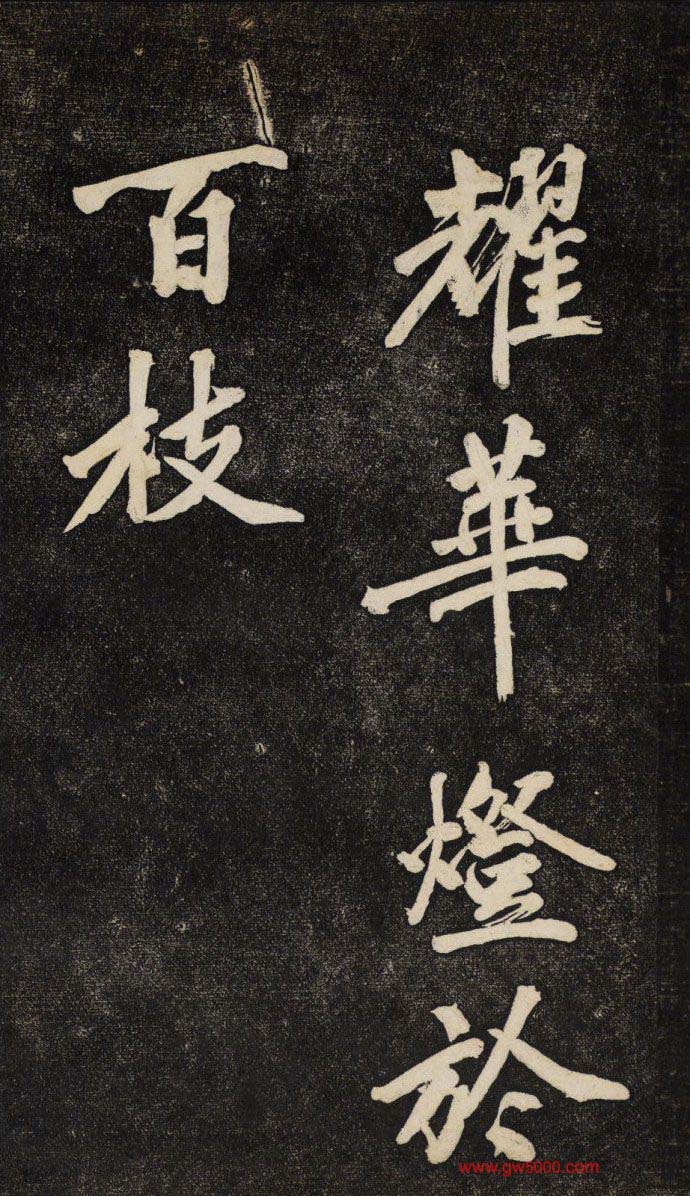 耀華燈於
百枝
www.gw5000.com